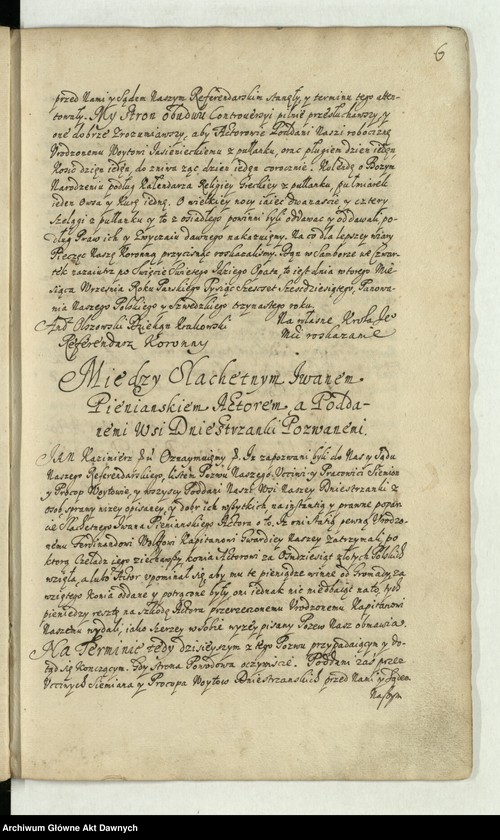 6
przed Nami y Sądem Naszym Referendarskim stanęły, y terminu tego atten-
towały. My stron obudwu Controwersyi pilnie przesłuchawszy, y
one dobrze zrozumiawszy, aby Actorowie Poddani Naszi roboczę
Urodzonemu Woytowi Jasienieckiemu z pułłanku, orać pługiem dzień ieden,
kosić dzień ieden, do żniwa ząc dzień ieden corocznie. Kolendę o Bożym
Narodzeniu podług Kalendarza Religiey Greckiey z pułłanku, pułmiarek
ieden Owsa y Kurę iednę. O wielkiey nocy iaiec dwanascie y cztery
szelągi z pułłanku cy to z osiadłego powinni byli oddawać y oddawali, po-
dług Praw ich y Zwyczaiu dawnego nakazuiemy. Na co dla lepszey wiary
Pieczęć Naszę Koronną przycisnąć roskazalismy. Dan w Samborze we Czwar-
tek nazaiutrz po Swięcie Swiętego Idziego Opata, to iest dnia wtorego Mie-
siąca Września Roku Pańskiego Tysiąc Szescset Szescdziesiątego, Panowa-
nia Naszego Polskiego y Szwedzkiego trzynastego roku.
And: Olszowski Dziekan Krakowski
Referendarz Koronny
Na własne Króla Je°
Mci roskazanie
Między Slachetnym Iwanem
Pieniańskiem Actorem, a Podda-
nemi Wsi Dniestrzanki Pozwanemi.
JAN Kazimierz Oznaymuiemy Iż zapozwani byli do Nas y Sądu
Naszego Referendarskiego, listem Pozwu Naszego, Uczciwi y Pracowici Siemion
y Prokop Woytowie, y wszyscy Poddani Naszi Wsi Naszey Dniestrzanki z
osob sprawy niżey opisaney, y dobr ich wszytkich na instantią y prawne popar-
cie Slachetnego Iwana Pieniańskiego Actora o to, Iż oni Stacią pewną Urodzo-
nemu Ferdinandowi Wolfowi Kapitanowi Gwardiey Naszey zatrzymali, po
którą Czeladź iego ziechawszy konia Actorowi za Ośmdziesiąt złotych Polskich
wzięła, a lubo Actor upominał się, aby mu te pieniądze winne od Gromady, za
wziętego konia oddane y potrącone były, oni iednak nic niedbaiąc na to, tych
pieniędzy resztę na szkodę Actora przerzeczonemu Urodzonemu Kapitanowi
Naszemu wydali, iako szerzey w sobie wyzey pisany Pozew Nasz obmawia.
Na Terminie tedy dzisieyszym z tego Pozwu przypadaiącym y do-
tąd się kończącym, gdy Strona Powodowa oczywiscie. Poddani zaś przez
Uczciwych Siemiana y Procopa Woytow Dniestrzanskich przed Nami y Sądem
Naszym
Archiwum Główne Akt Dawnych